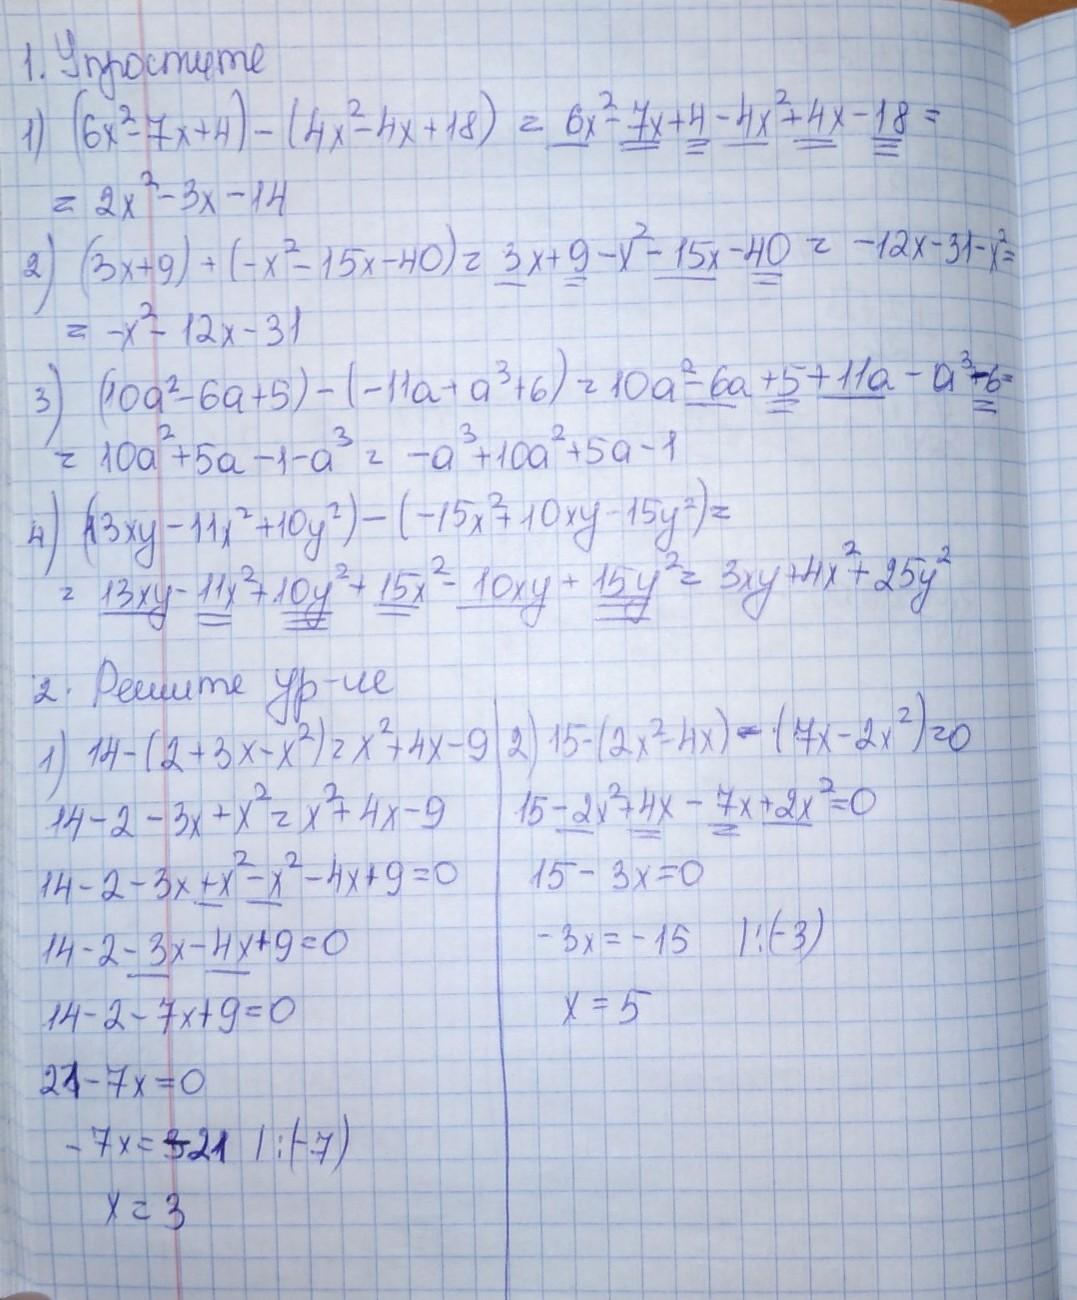 1. Упростите
1) (6x²-7x+4)-(4x²-4x+18) = 6x²-7x+4-4x²+4x-18 =
= 2x²-3x-14
2) (3x+9)+(-x²-15x-40)= 3x+9-x²-15x-40 = -12x-31-x²=
= -x²-12x-31
3) (10a²-6a+5)-(-11a+a³+6)=10a²-6a+5+11a-a³-6=
= 10a²+5a-1-a³= -a³+10a²+5a-1
4) (13xy-11x²+10y²)-(-15x²+10xy-15y²)=
= 13xy-11x²+10y²+15x²-10xy+15y²= 3xy+4x²+25y²
2. Решите ур-ие
1) 14-(2+3x-x²)=x²+4x-9
14-2-3x+x²=x²+4x-9
14-2-3x+x²-x²-4x+9=0
14-2-3x-4x+9=0
14-2-7x+9=0
21-7x=0
-7x=-21 |:(-7)
x=3
2) 15-(2x²-4x)-(7x-2x²)=0
15-2x²+4x-7x+2x²=0
15-3x=0
-3x=-15 |:(-3)
x=5